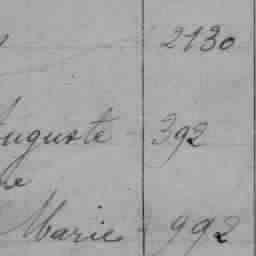 2130
Auguste 392
ne
Marie 992